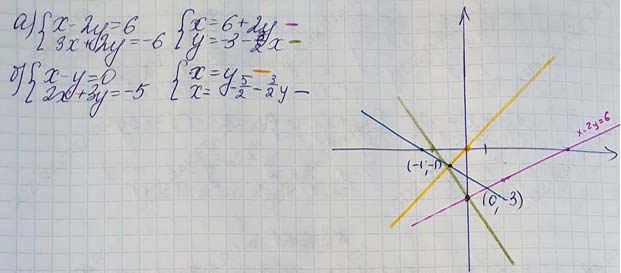 а) { x-2y=6 { x=6+2y -
{ 3x+2y=-6 { y=-3-3/2x -
б) { x-y=0 { x=y -
{ 2x+3y=-5 { x=-5/2-3/2y -
x-2y=6
1
(-1;-1)
(0,-3)